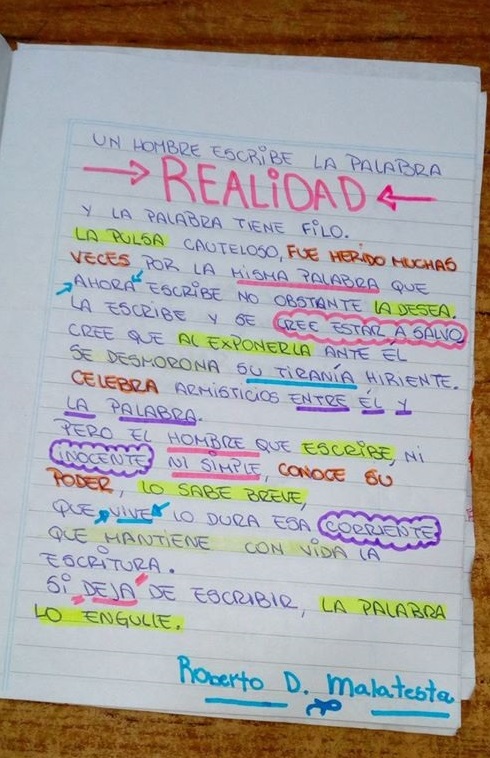 UN HOMBRE ESCRIBE LA PALABRA
REALiDAD
Y LA PALABRA TIENE FILO.
LA PULSA CAUTELOSO, FUE HERIDO MUCHAS
VECES POR LA MISMA PALABRA QUE
AHORA ESCRIBE NO OBSTANTE LA DESEA.
LA ESCRIBE Y SE CREE ESTAR A SALVO,
CREE QUE AL EXPONERLA ANTE ÉL
SE DESMORONA SU TIRANÍA HIRIENTE.
CELEBRA ARMISTICIOS ENTRE ÉL Y
LA PALABRA.
PERO EL HOMBRE QUE ESCRIBE, NI
INOCENTE NI SIMPLE, CONOCE SU
PODER, LO SABE BREVE,
QUE VIVE LO DURA ESA CORRIENTE
QUE MANTIENE CON VIDA LA
ESCRITURA.
SI DEJA DE ESCRIBIR, LA PALABRA
LO ENGULLE.
Roberto D. Malatesta